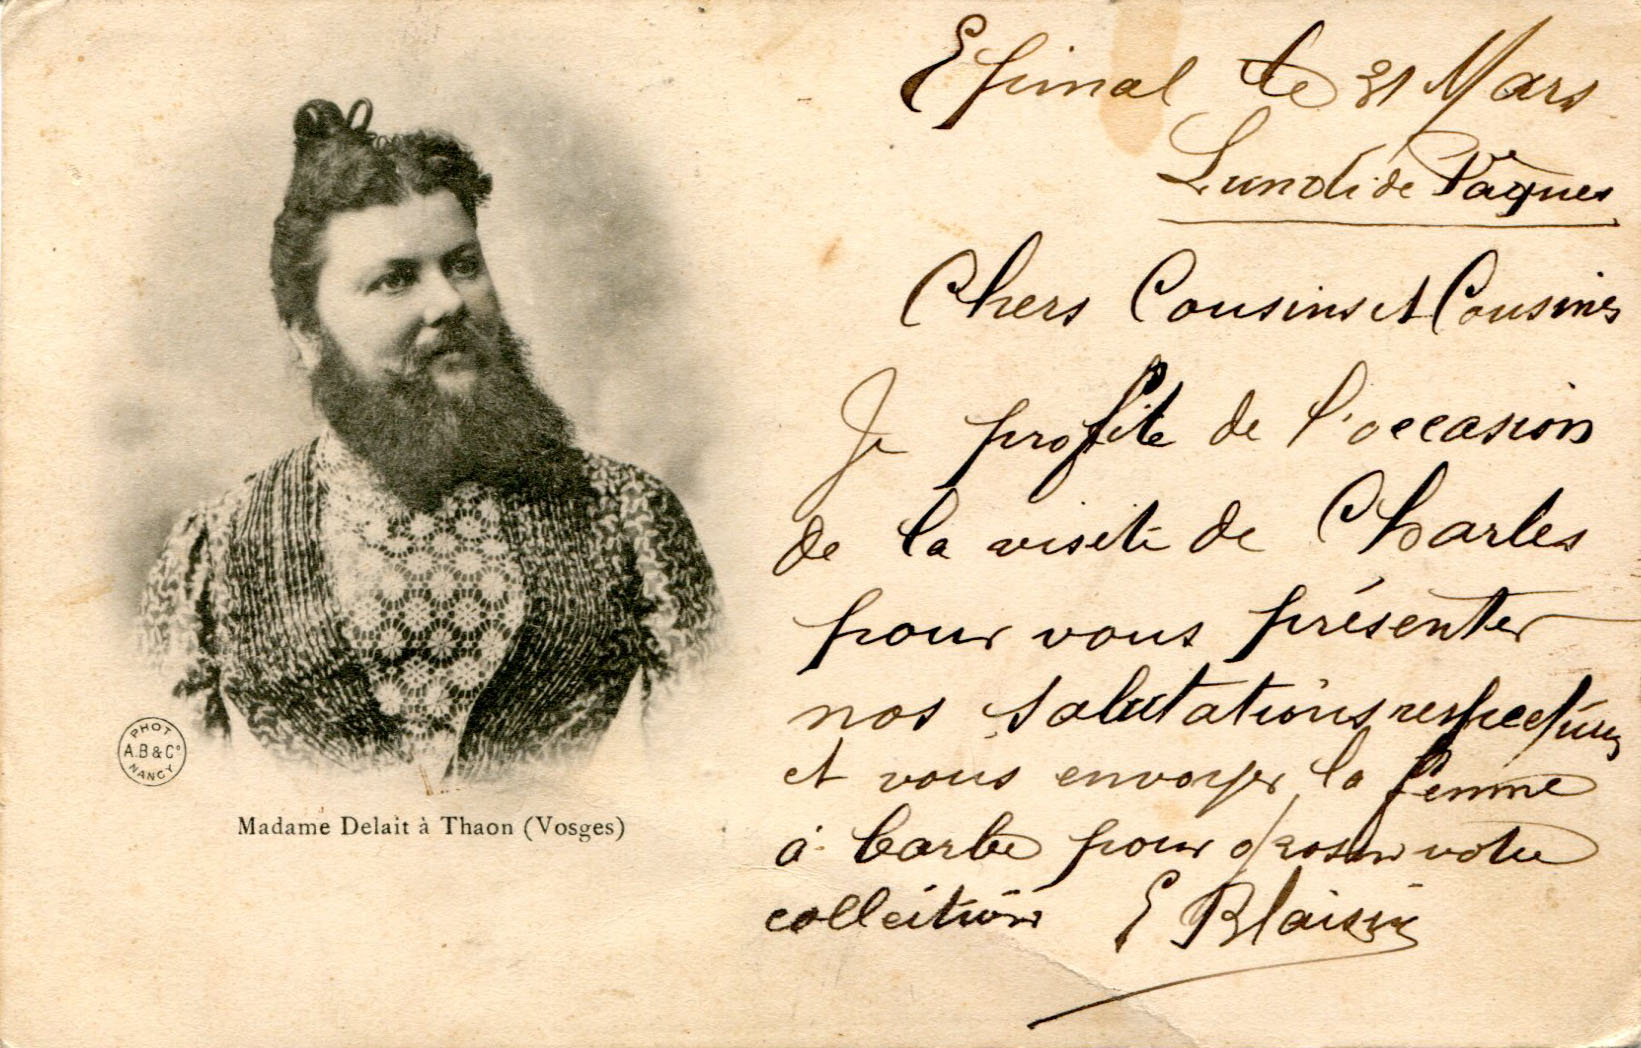 Epinal le 31 Mars
Lundi de Pâques
Chers Cousins et Cousines
Je profite de l'occasion
de la visite de Charles
pour vous présenter
nos salutations respectueuses
et vous envoyer la femme
à barbe pour grossir votre
collection E Blaisin
PHOT
A.B & Cº
NANCY
Madame Delait à Thaon (Vosges)